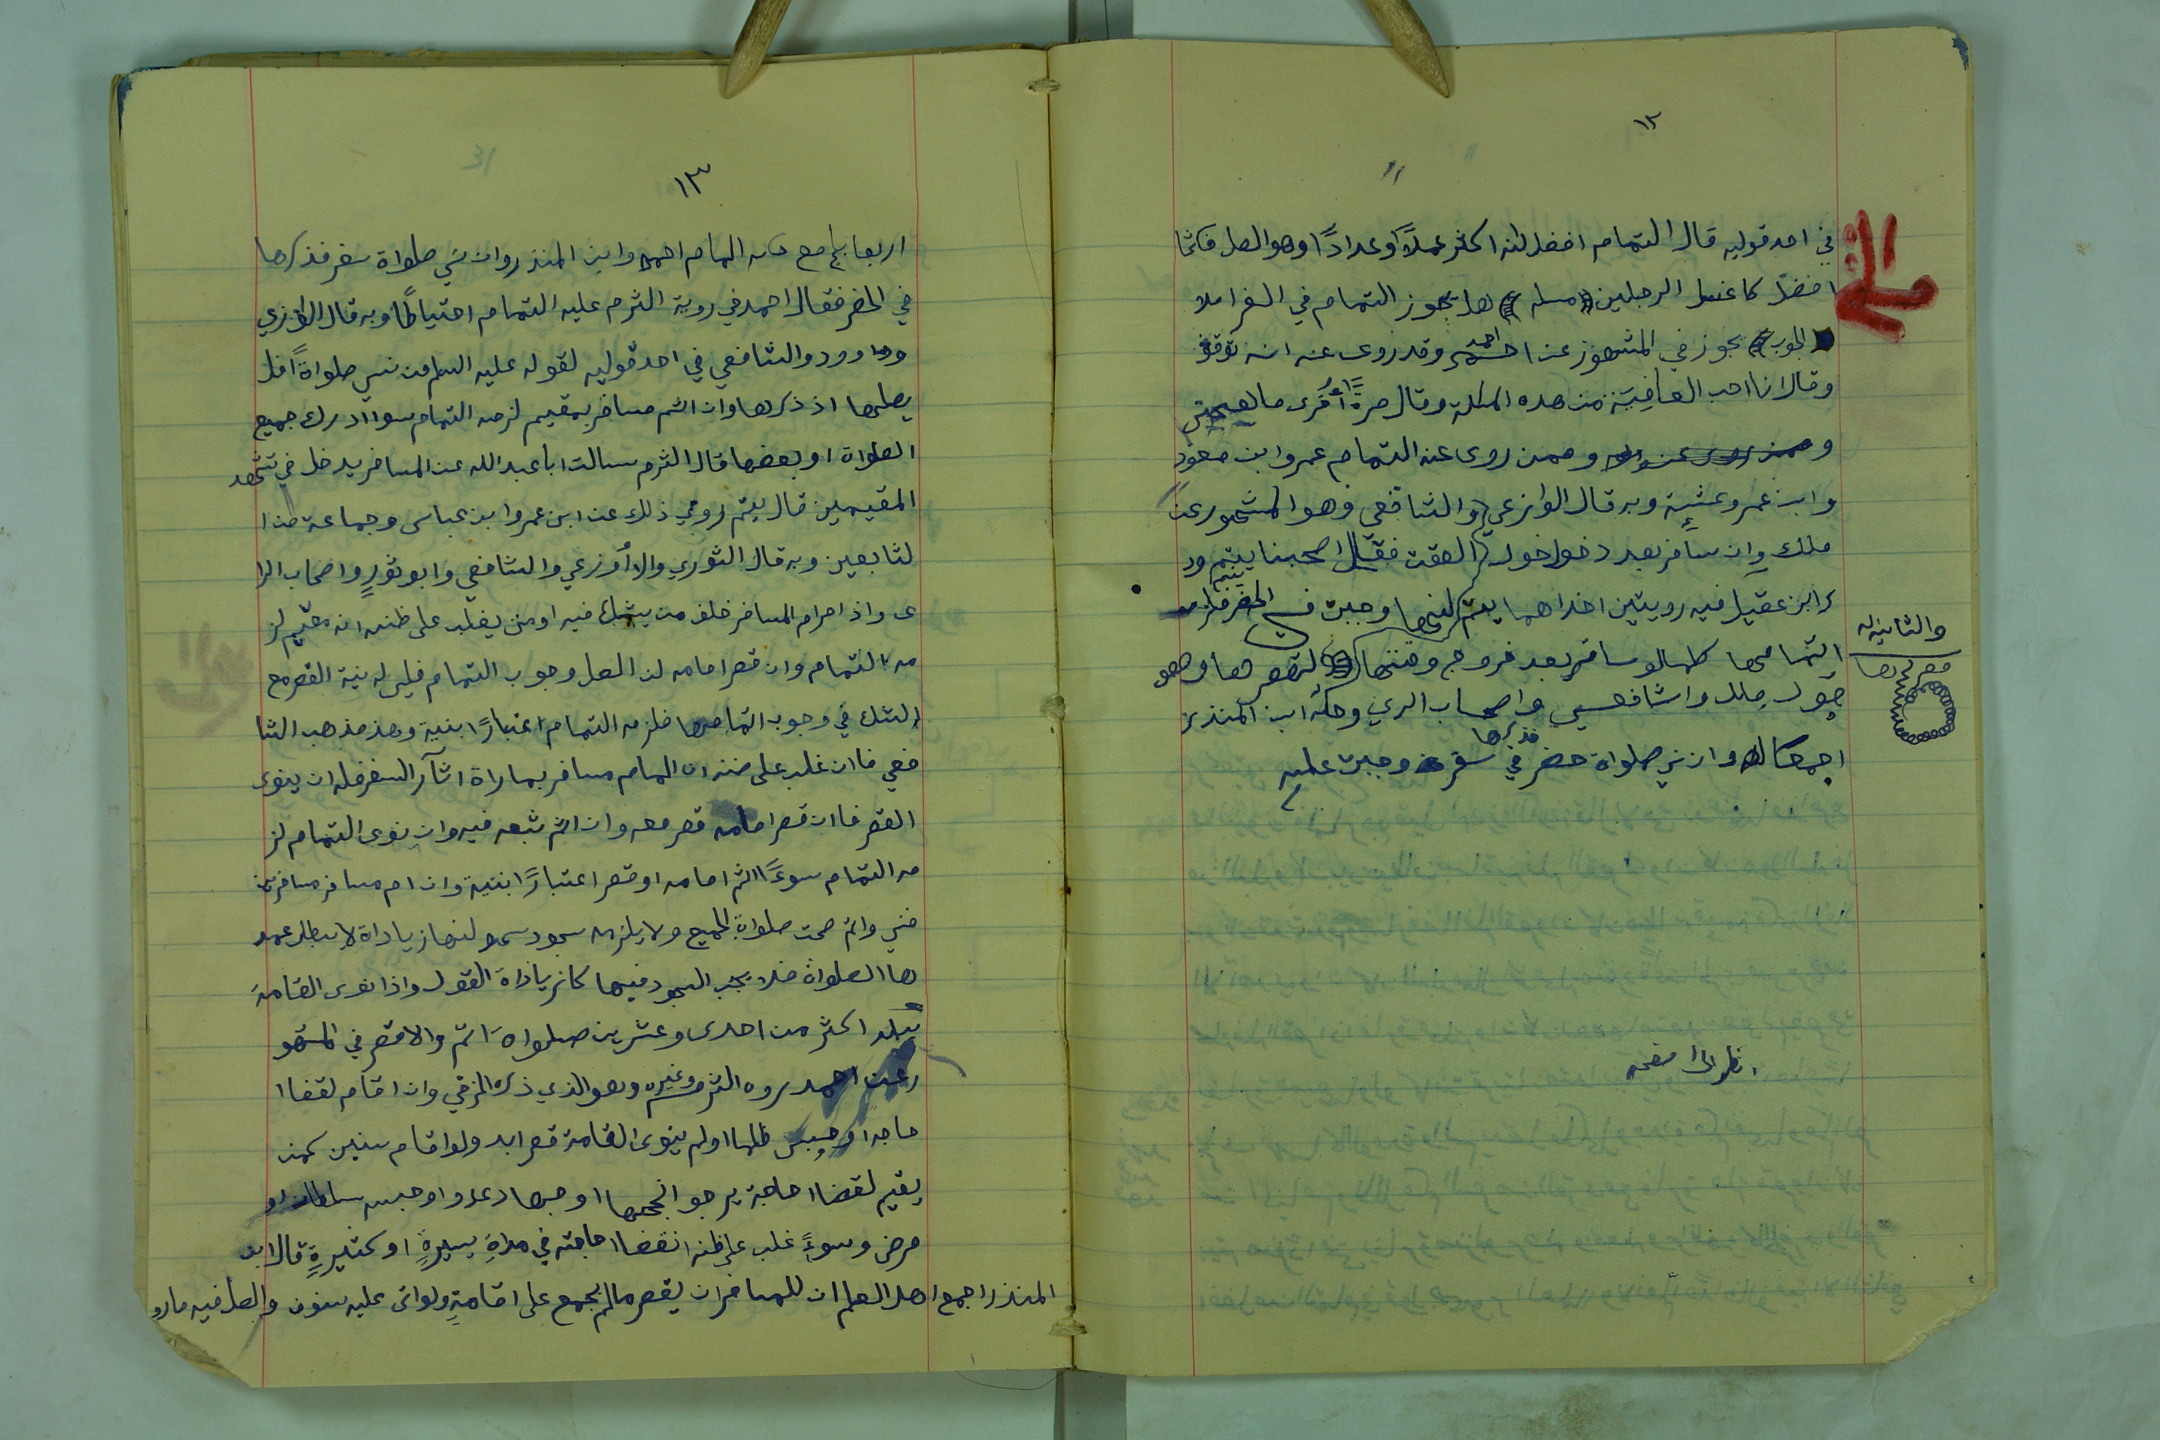 ١٢
في احد قوليه قال التمام افضل لئنه اكثر عملاً وعدادًا وهو الصل فكانا
افضل كا غسل الرجلين مسله هل يجوز التمام في السفر ام لا
الجوب يجوز في المشهور عن احمد وقد روى عنه انه توقف
وقال انا احب العافية من هده المسلة وقال مرةً أُخرى ما يعجبني
وممن روى عنه التمام عمر وابن مسعود
وابن عمر وعئشة وبه قال الوازعي والشافعي وهو المشهور عن
ملك وان سافر بعد دخول الوقت فقال اصحبنا يتم وذ
كر ابن عقيل فيه رويتين احداهما يتم لئنها وجبت في الحضر فلزمه
والثانية له
قصرلها
اتمامها كلها لو سافر بعد خروج وقتها لقصرها وهو
قول ملك واشافعي واصحاب الري وحكه ابن المنذر
اجمعا لها وان نسي صلواة حضر فذكرها في سفر وجبت عليه
انظر الى اصفحه
١٣
اربعا با مع حكه المام احمد وابن المنذر وان نسي صلواة سفر فذكرها
في الحضر فقال احمد في روية الثرم عليه التمام احتياطًا وبه قال الوزعي
وداوود والشافعي في احد قوليه لقوله عليه السلم من نسي صلواةً فل
يصليها اذ ذكرها وان ائتم مسافر بمقيم لزمه التمام سوا ادرك جميع
الصلواة او بعضها قال الثرم سالت ابا عبد الله عن المسافر يدخل في تشهد
المقيمين قال يتم روي ذلك عن ابن عمر وابن عباس وجماعة من ا
لتابعين وبه قال الثوري والأوزعي والشافعي وابو ثورٍ واصحاب الر
ى واذ احرام المسافر خلف من يشك فيه او من يغلب على ظنه انه مقيم لز
مه التمام وان قصر امامه لن الصل وجوب التمام فليس له نية القصر مع
الشك في وجوب اتمامها فلزمه التمام اعتبارًا بنية وهذ مذهب الشا
فعي فاان غلب على ضنه ان المام مسافر بمارة اثآر السفر فله ان ينوى
القصر فاان قصر امامه قصر معه وان اتم تبعه فيه وان نوى التمام لز
مه التمام سوءً اتم امامه او قصر اعتبارًا بنتية وان ام مسافر مسافرين
فنسي واتم صحت صلواة الجميع ولا يلزمه سجود سهو لنها زياداة لا يبطل عمد
ها الصلواة فلا يجب السجود فيها كا زياداة القول واذا نوى القامة
ببلد اكثر من احدى وعشرين صلواة اتم والا قصر في المشهو
ر عن احمد روه الثرم وغيره وهو الذي ذكره الخرقي وان اقام لقضاا
حاجه او حبس ظلما او لم ينوى القامة قصر ابد ولو اقام سنين كمن
يقيم لقضاا حاجة يرجو انجحها او جهاد عدو او حبسه سلطان او
مرض وسوءً غلب على ظنه انقضاا حاجته في مداةِ يسيرةٍ او كثيرةٍ قال ابن
المنذر اجمع اهل العلم ان للمسافر ان يقصر مالم يجمع على اقامةٍ ولو اتى عليه سنون والصل فيه مارو